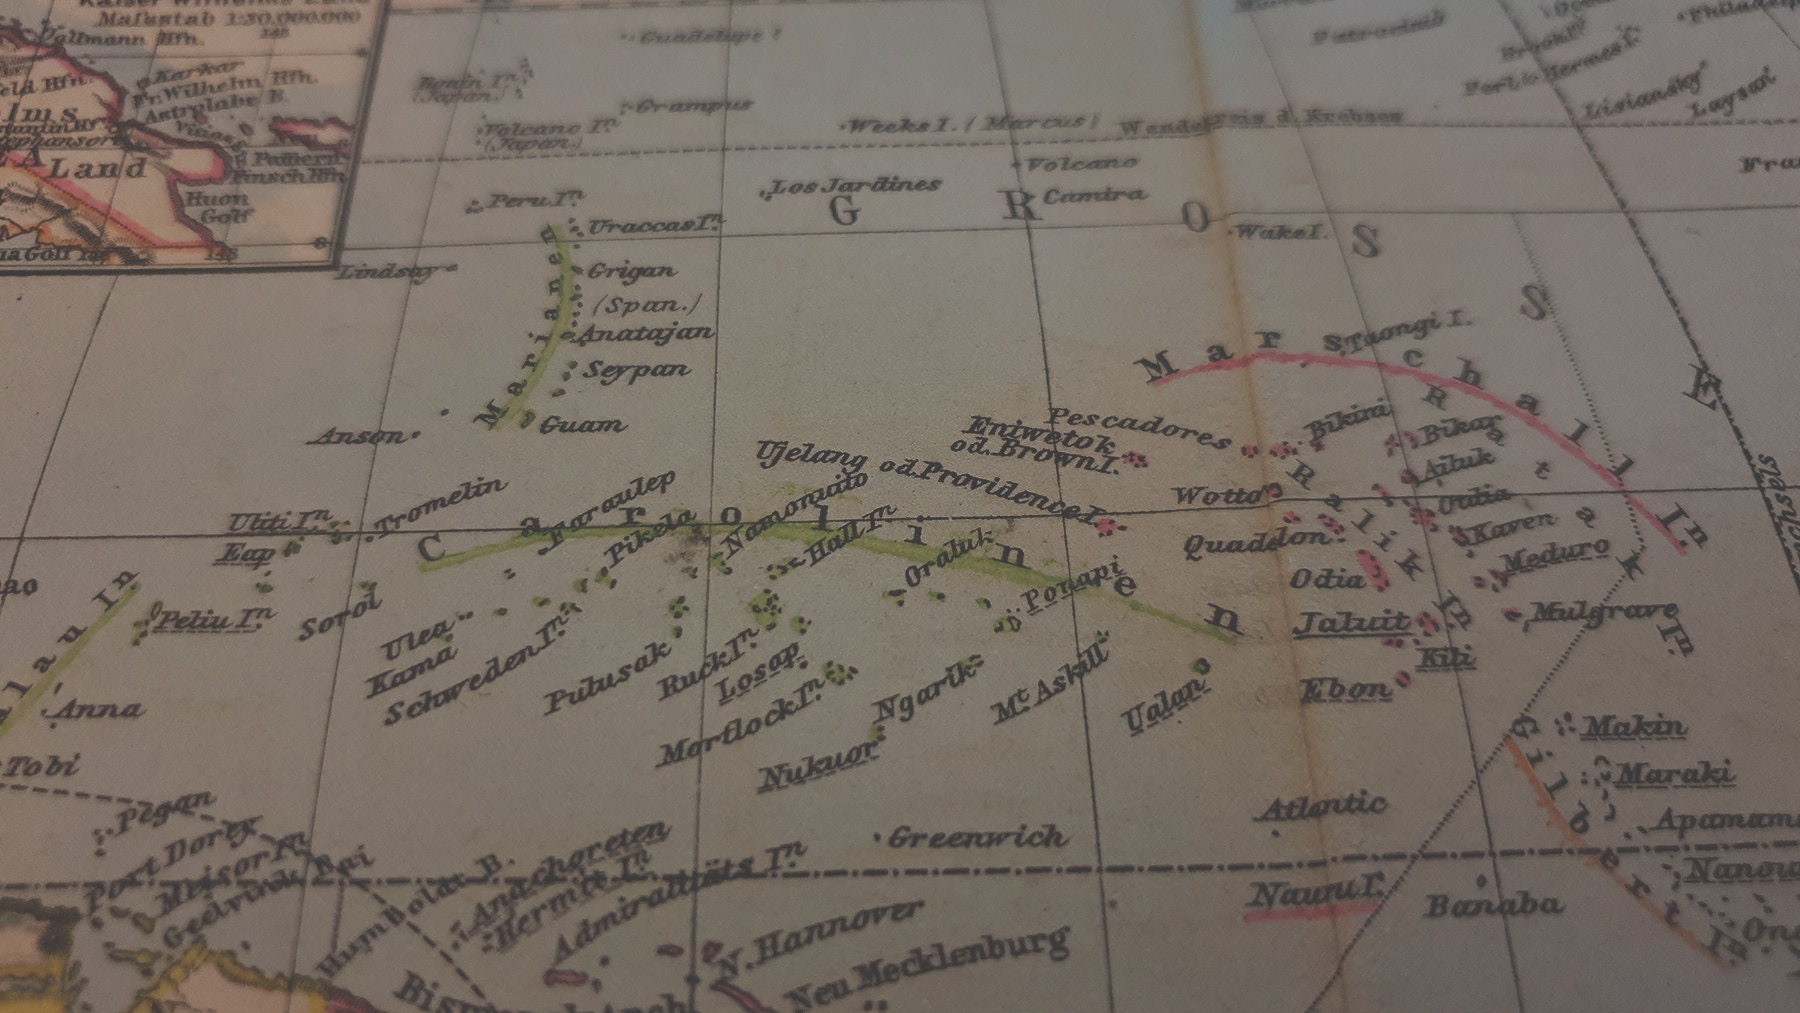 Maſsstab 1:30.000.000
Dallmann Hfn.
148
Karkar
Fr. Wilhelm Hfh.
Astrolabe B.
Land
Finsch Hfn
Huon
Golf
8
148
Guadelupe?
Bonin In
(Japan.)
Grampus
Volcano In
(Japan.)
Weeks I. (Marcus)
Wendekreis d. Krebses
Lisiansky
Laysan
Volcano
Los Jardines
Camira
Peru In
Uraccas In
G R O S S E
Wake I.
Lindsay
Grigan
(Span.)
Anatajan
Seypan
Guam
Marianen
Anson
Marschall In
S Taongi I.
Pescadores
Bikini
Eniwetok
od. Brown I.
Bikar
Ailuk
Ujelang od. Providence I.
Wotto
Ralik In
Ratak In
Kaven
Quadelon
Meduro
Odia
Jaluit
Mulgrave
Kili
Ebon
Uliti In
Tromelin
Eap
Faraulep
Pikela
Namonuito
Hall In
Oraluk
Ponapi
Carolinen
Peliu In
Sorol
Ulea
Kama
Schweden In
Pulusak
Ruck In
Losap
Mortlock In
Nukuor
Ngarik
Mt Askill
Ualan
lau In
Anna
Tobi
Pegan
Port Dorey
Geelvink Bai
Humboldt B.
Anachoreten
Hermit In
Admiralitäts In
Greenwich
Atlantic
Gilbert In
Makin
Maraki
Nauru I.
Banaba
N. Hannover
Neu Mecklenburg